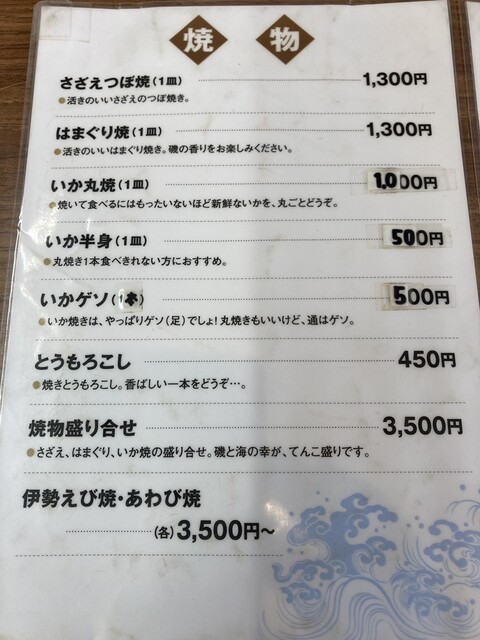 焼物
さざえつぼ焼(1皿) 1,300円
●活きのいいさざえのつぼ焼き。
はまぐり焼(1皿) 1,300円
●活きのいいはまぐり焼き。磯の香りをお楽しみください。
いか丸焼(1皿) 1,000円
●焼いて食べるにはもったいないほど新鮮ないかを、丸ごとどうぞ。
いか半身(1皿) 500円
●丸焼き1本食べきれない方におすすめ。
いかゲソ(1本) 500円
●いか焼きは、やっぱりゲソ(足)でしょ!丸焼きもいいけど、通はゲソ。
とうもろこし 450円
●焼きとうもろこし。香ばしい一本をどうぞ…。
焼物盛り合せ 3,500円
●さざえ、はまぐり、いか焼の盛り合せ。磯と海の幸が、てんこ盛りです。
伊勢えび焼・あわび焼
(各)3,500円〜